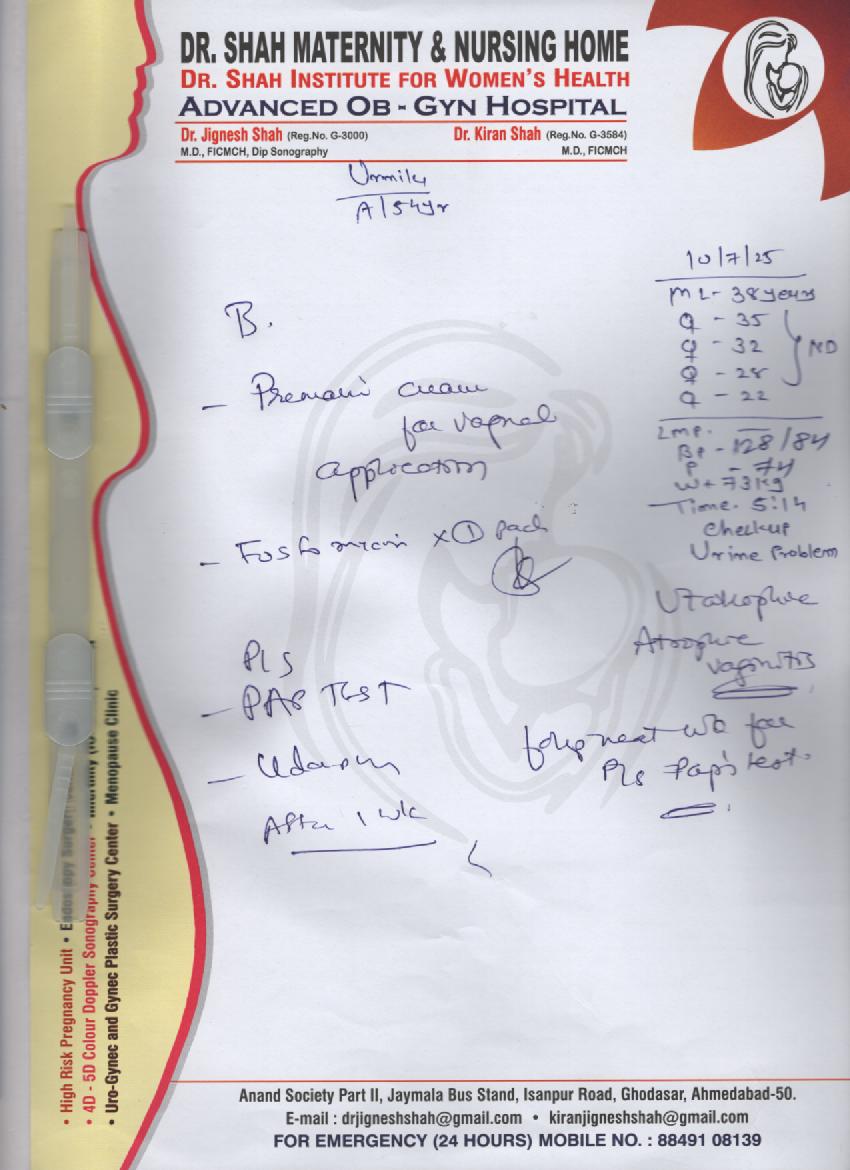 DR. SHAH MATERNITY & NURSING HOME
DR. SHAH INSTITUTE FOR WOMEN'S HEALTH
ADVANCED OB - GYN HOSPITAL
Dr. Jignesh Shah (Reg.No. G-3000) Dr. Kiran Shah (Reg.No. G-3584)
M.D., FICMCH, Dip Sonography M.D., FICMCH
A/54yr
10/7/25
ML- 38 years
♀ - 35
♀ - 32
♀ - 28
♀ - 22
ND
LMP.
BP - 128/84
P - 74
Wt 73kg
Time. 5:14
Checkup
Urine Problem
Atrophic
vaginitis
- Premarin cream
for vaginal
application
- Fosfomycin x ① pack
P/S
- PAP TEST
After 1 wk
next wk for
P/s Pap's test.
• High Risk Pregnancy Unit • Endoscopy Surgery
• 4D - 5D Colour Doppler Sonography Center •
• Uro-Gynec and Gynec Plastic Surgery Center • Menopause Clinic
Anand Society Part II, Jaymala Bus Stand, Isanpur Road, Ghodasar, Ahmedabad-50.
E-mail : drjigneshshah@gmail.com • kiranjigneshshah@gmail.com
FOR EMERGENCY (24 HOURS) MOBILE NO. : 88491 08139